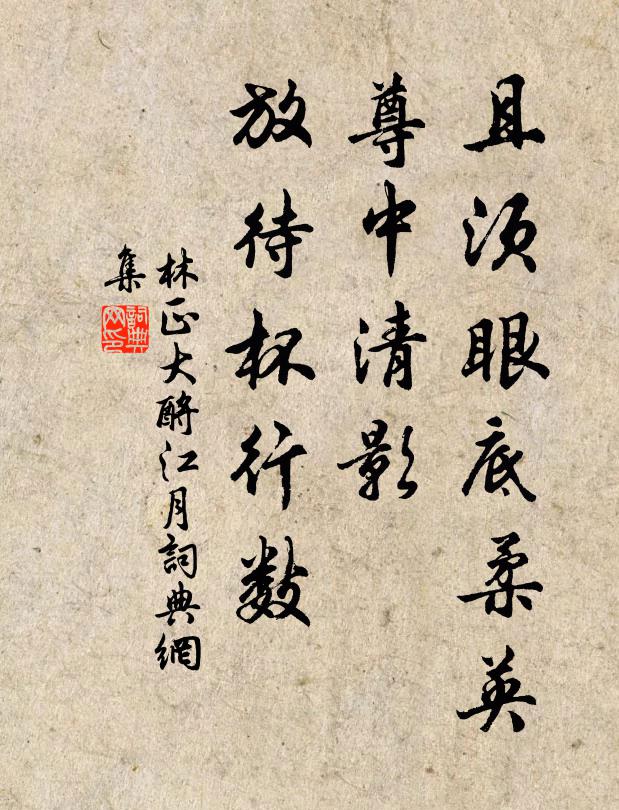 且須眼底柔英
尊中清影
放待杯行數
林正大酹江月詞典網
集
詞典網印